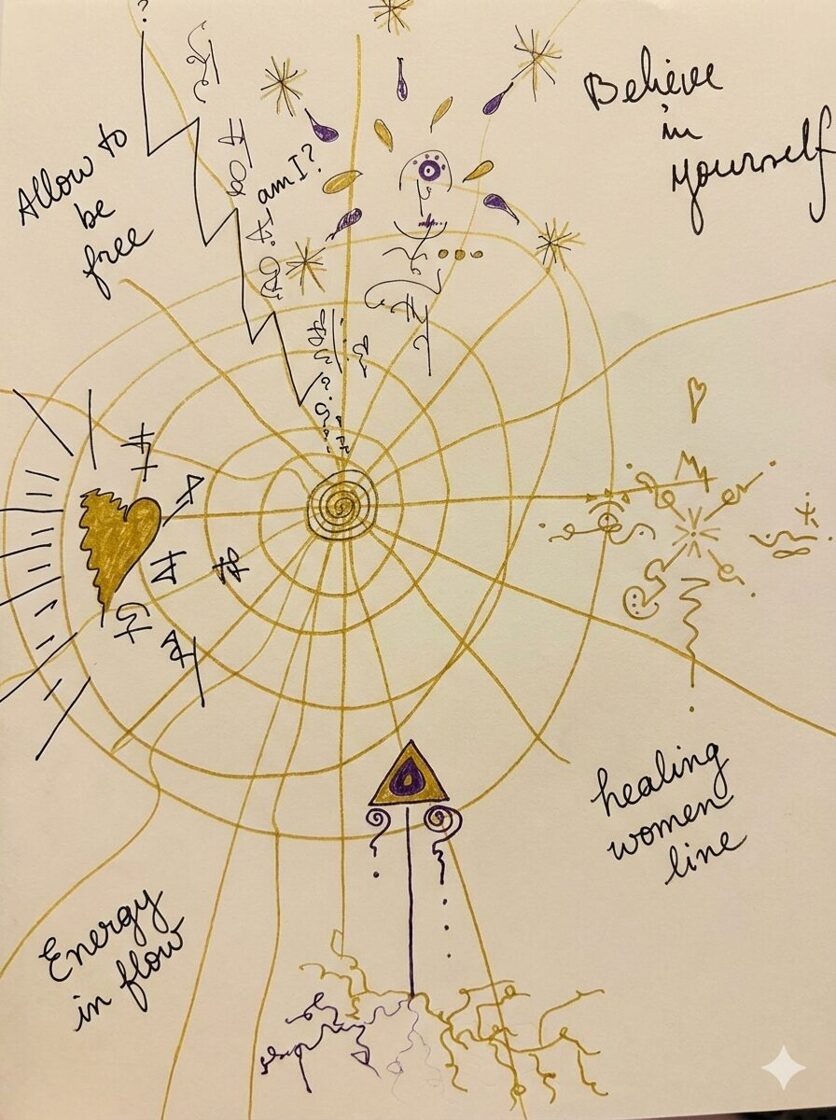 ?
Allow to
be
free
am I?
Believe
in
yourself
healing
women
line
Energy
in flow